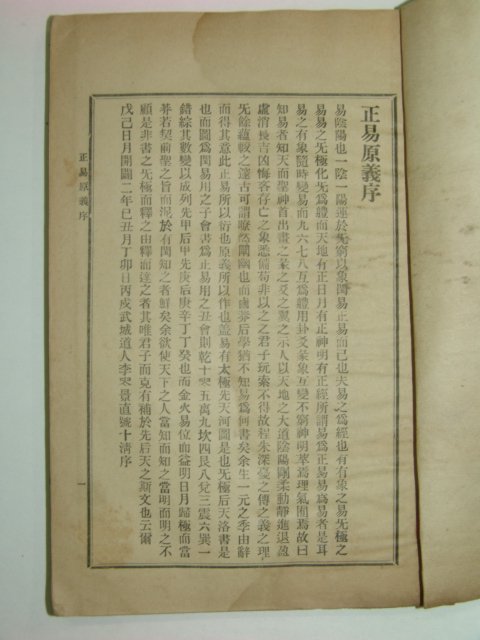 正易原義序
易陰陽也一陰一陽運於无窮以象閏易正易而已也夫易之爲經也有有象之易无極之
易易之无極化无爲體而天地有正日月有正神明有正經所謂易爲正易易爲易者是耳
易之有象隨時變易而九六七八互爲體用卦爻彖象互變不窮神明萃爲理氣囿焉故曰
知易者知天而聖神首出畫之彖之爻之翼之示人以天地之大道陰陽剛柔動靜進退盈
虛消長吉凶悔吝存亡之象悉備苟非以之之君子玩索不得故程朱深憂之傳之義之理
无餘蘊較之邃古可謂暸然闡幽也而鹵莽后學猶不知易爲何書矣余生一元之季由辭
而得其意此正易所以衍也原義所以作也盖易有太極先天河圖是也无極后天洛書是
也而圖爲閏易用之子會書爲正易用之丑會則乾十坤五離九坎四艮八兌三震六巽一
錯綜其數變以成列先甲后甲先庚后庚辛丁丁癸也而金火易位而益明日月歸極而當
朞若契前聖之旨而泥於有閏知之者鮮矣余欲使天下之人當知而知之當明而明之不
顧是非書之无極而釋之由釋而達之者其唯君子而克有補於先后天之斯文也云爾
戊己日月開闢二年己丑月丁卯日丙戌武城道人李景直號十淸序
正易原義序
一